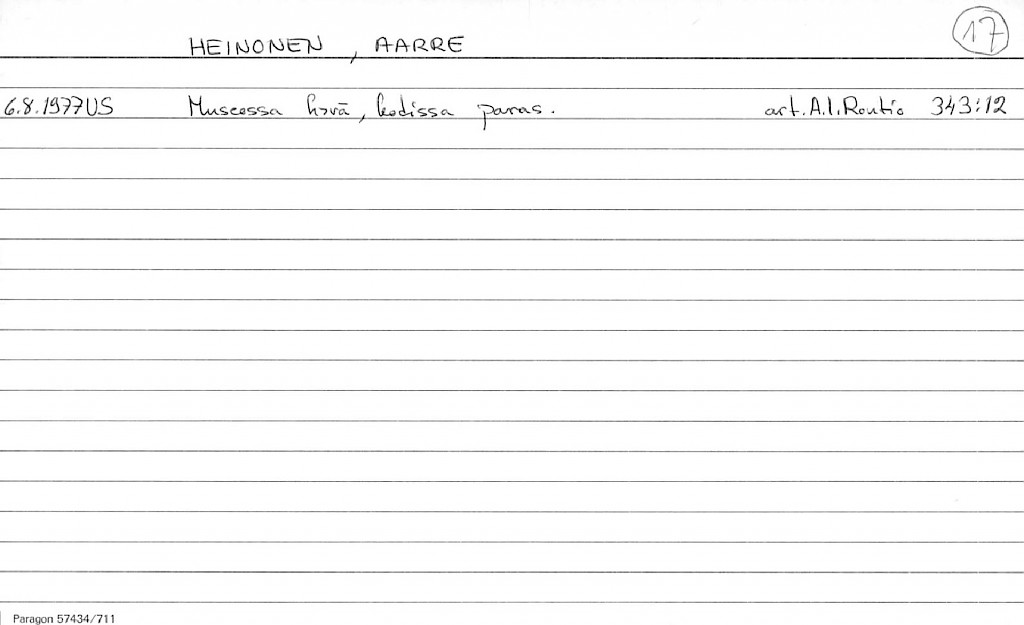 17
HEINONEN, AARRE
6.8.1977 US Museossa hyvä, kodissa paras. art. A.I. Routio 343:12
Paragon 57434/711